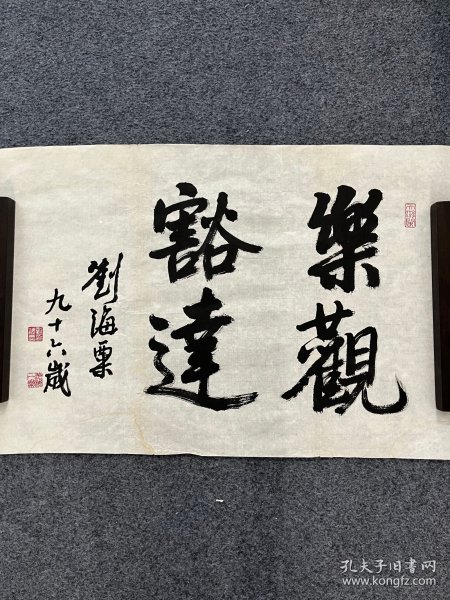 樂觀
豁達
劉海粟
九十六歲
孔夫子旧书网
www.kongfz.com